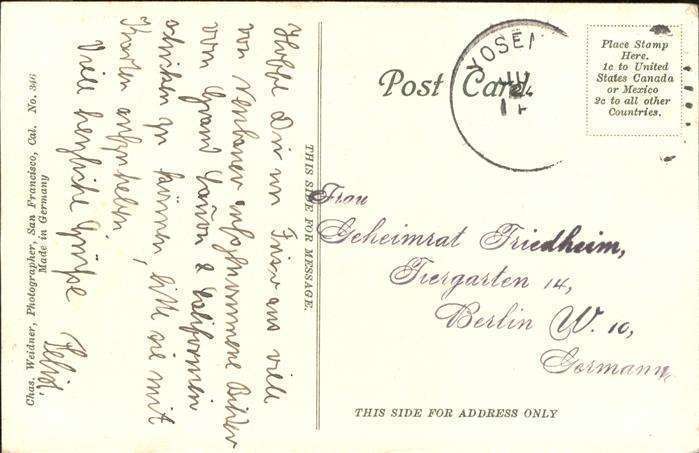 Post Card
YOSEM
JU
24
Place Stamp
Here.
1c to United
States Canada
or Mexico
2c to all other
Countries.
Hoffe Dir im Friese aus viele
von Neubauer aufgenommene Bilder
vom Grand Cañon & Californien
schicken zu können, bitte sie mit
Karten aufzuheben
Viele herzliche Grüße
THIS SIDE FOR MESSAGE.
Frau
Geheimrat Friedheim,
Tiergarten 14,
Berlin W. 10,
Germany
THIS SIDE FOR ADDRESS ONLY
Chas. Weidner, Photographer, San Francisco, Cal. No. 346
Made in Germany